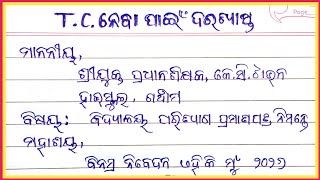 Page
T.C.ନେବା ପାଇଁ ଦରଖାସ୍ତ
ମାନନୀୟ,
ଶ୍ରୀଯୁକ୍ତ ପ୍ରଧାନଶିକ୍ଷକ, କେ.ସି.ଟାଉନ
ହାଇସ୍କୁଲ, ଗଞ୍ଜାମ
ବିଷୟ: ବିଦ୍ୟାଳୟ ପରିତ୍ୟାଗ ପ୍ରମାଣପତ୍ର ନିମନ୍ତେ
ମହାଶୟ,
ବିନମ୍ର ନିବେଦନ ଏହି କି ମୁଁ ୨୦୨୨